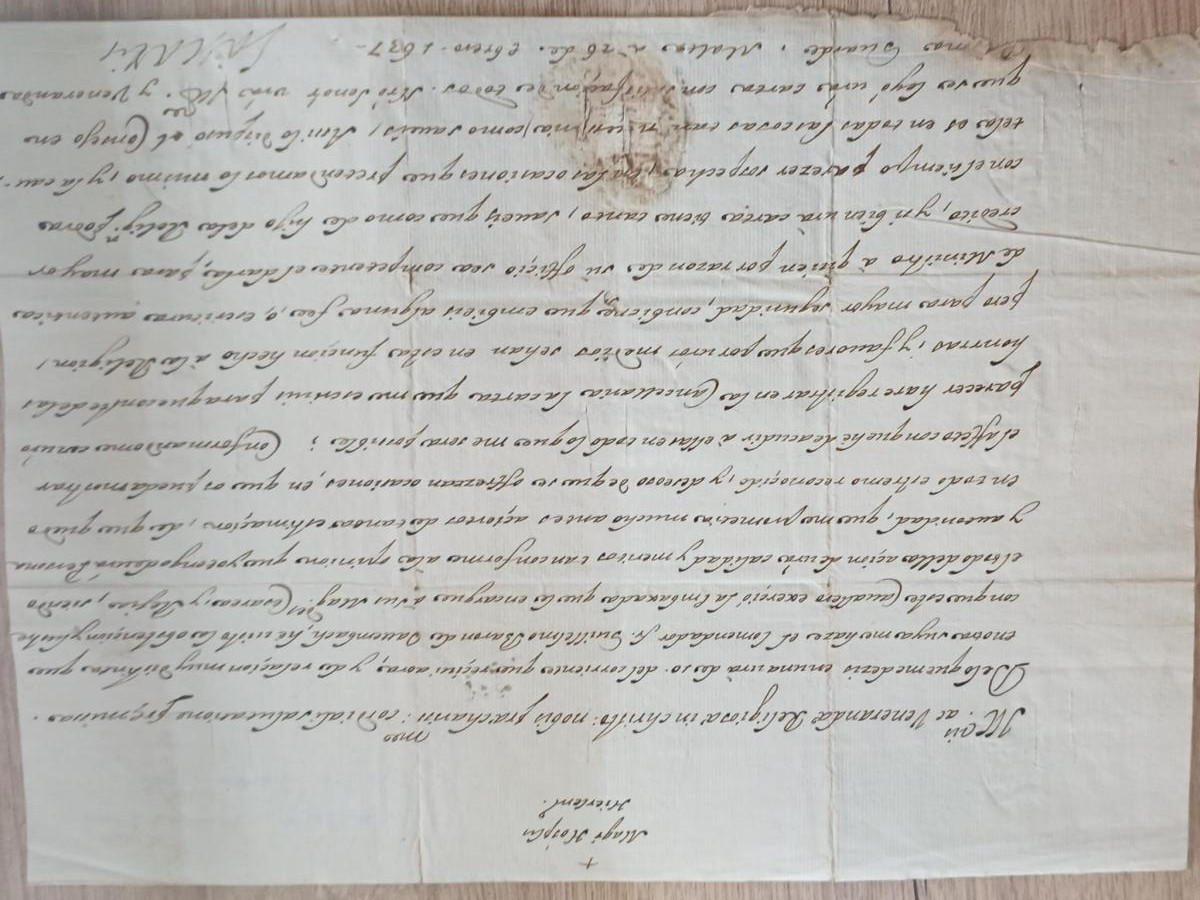 +
Mag.r Hospitis
Hierlem.
ac Venerand Religiosi in christo nobis præcharis.mi cordiali salutatione præmissa.
De lo que me dezis en una vrã de 10. del corriente que recivi aora, y de relacion muy distinta, que
en otra suya me haze el Comendador fr. Guillelmo Baron de he visto la obstentacion y lustre
con que este Cavallero exercio la Embaxada que le encargue a Sus Mag.des Cesarea, y Regia, siendo
el todo della accion de vrã calidad y meritos tan conforme a la opinion que yo tengo de vrã Persona
y autoridad, que me prometia mucho antes actiones de tanta estimacion, de que quedo
en todo estremo reconoçido, y deseoso de que se offrezcan ocasiones, en que os pueda mostrar
el affeto con que he de acudir a ellas en todo lo que me sera possible; Conformandome con vrõ
parecer hare registrar en la Cancelleria la carta que me escrivis para que conste de las
honrras, y favores que por vrõs medios se han en esta funçion hecho a la Religion,
pero para mayor seguridad, combiene que embieis alguna fee, o escrittura autentica
de Ministro a quien por razon de su officio sea competente el darla, para mayor
credito, y si bien vrã carta tiene tanto, saveis que como de hijo dela Relig.n podra
con el tiempo parezer sospecha, en las ocasiones que preeendamos lo mismo, y la cau-
tela es en todas las cosas tan como saveis, Assi lo dispuso el Consejo en
que se leyó vrã carta con satisfaçion de todos. Nrõ Senor vrãs y Veneranda
guarde, Malta a 26 de. ebrero. 1637